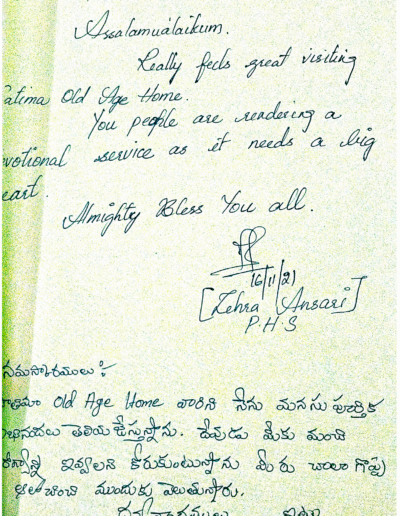 Assalamualaikum.
Really feels great visiting
atima Old Age Home.
You people are rendering a
votional service as it needs a big
eart.
Almighty Bless You all.
16/11/21
[Zehra Ansari]
P.H.S
నమస్కారములు :-
Old Age Home వారికి నేను మనసు పూర్తిక
తెలియజేస్తున్నాను. దేవుడు మీకు మంచి
ఇవ్వాలని కోరుకుంటున్నాను మీరు చాలా గొప్ప
ముందుకు వెలుతున్నారు.